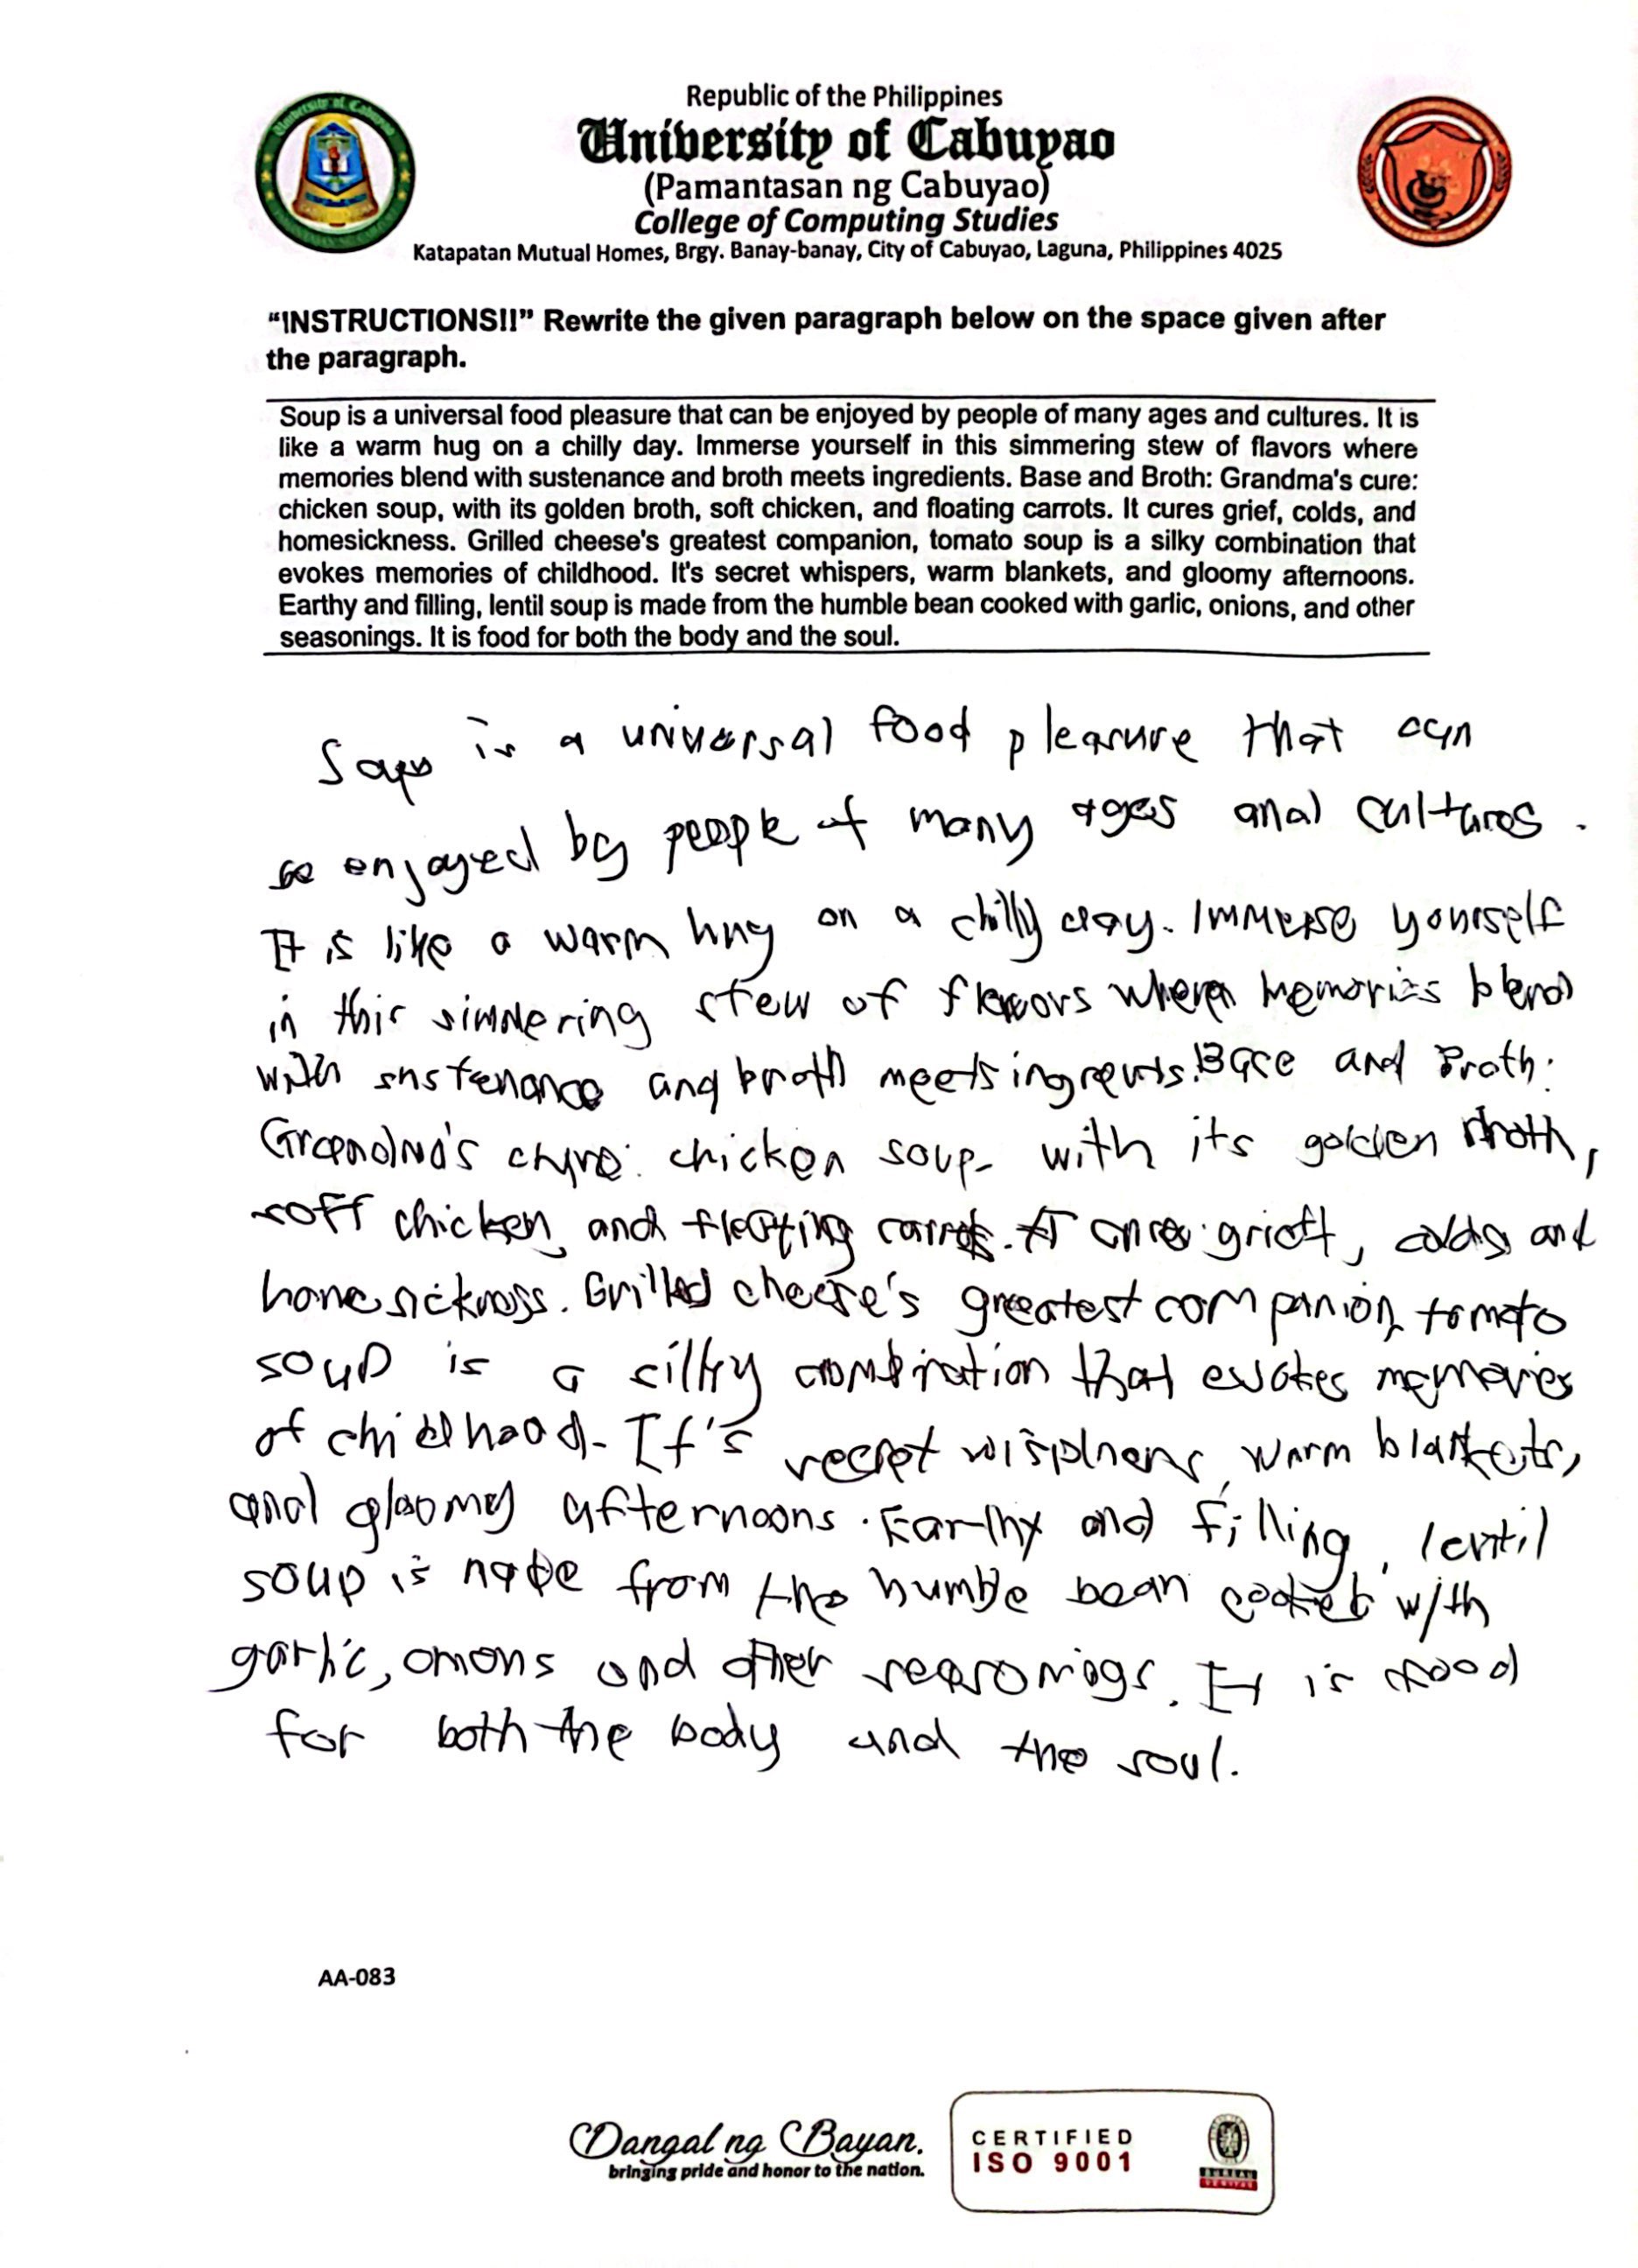 Republic of the Philippines
University of Cabuyao
(Pamantasan ng Cabuyao)
College of Computing Studies
Katapatan Mutual Homes, Brgy. Banay-banay, City of Cabuyao, Laguna, Philippines 4025
“INSTRUCTIONS!!” Rewrite the given paragraph below on the space given after
the paragraph.
Soup is a universal food pleasure that can be enjoyed by people of many ages and cultures. It is
like a warm hug on a chilly day. Immerse yourself in this simmering stew of flavors where
memories blend with sustenance and broth meets ingredients. Base and Broth: Grandma's cure:
chicken soup, with its golden broth, soft chicken, and floating carrots. It cures grief, colds, and
homesickness. Grilled cheese's greatest companion, tomato soup is a silky combination that
evokes memories of childhood. It's secret whispers, warm blankets, and gloomy afternoons.
Earthy and filling, lentil soup is made from the humble bean cooked with garlic, onions, and other
seasonings. It is food for both the body and the soul.
is a universal food pleasure that can
enjoyed by people of many ages and cultures.
It is like a warm hug on a chilly day. Immerse yourself
in this simmering stew of flavors where memories blend
with sustenance and broth meets Base and Broth:
chicken soup with its golden broth,
soft chicken, and floating carrots. It colds and
homesickness. Grilled cheese's greatest companion, tomato
soup is a silky combination that evokes memories
of childhood. It's secret warm blankets,
and gloomy afternoons. Earthy and filling, lentil
soup is from the humble bean cooked with
garlic, onions and other seasonings. It is food
for both the body and the soul.
AA-083
Dangal ng Bayan.
bringing pride and honor to the nation.
CERTIFIED
ISO 9001
BUREAU
VERITAS